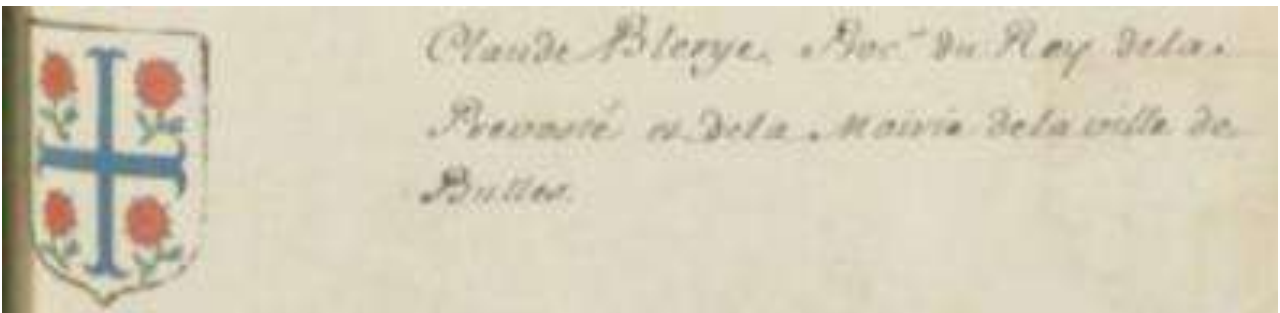 Claude Blerye, Proc.r du Roy dela
Prevosté et dela Mairie dela ville de
Bulles.